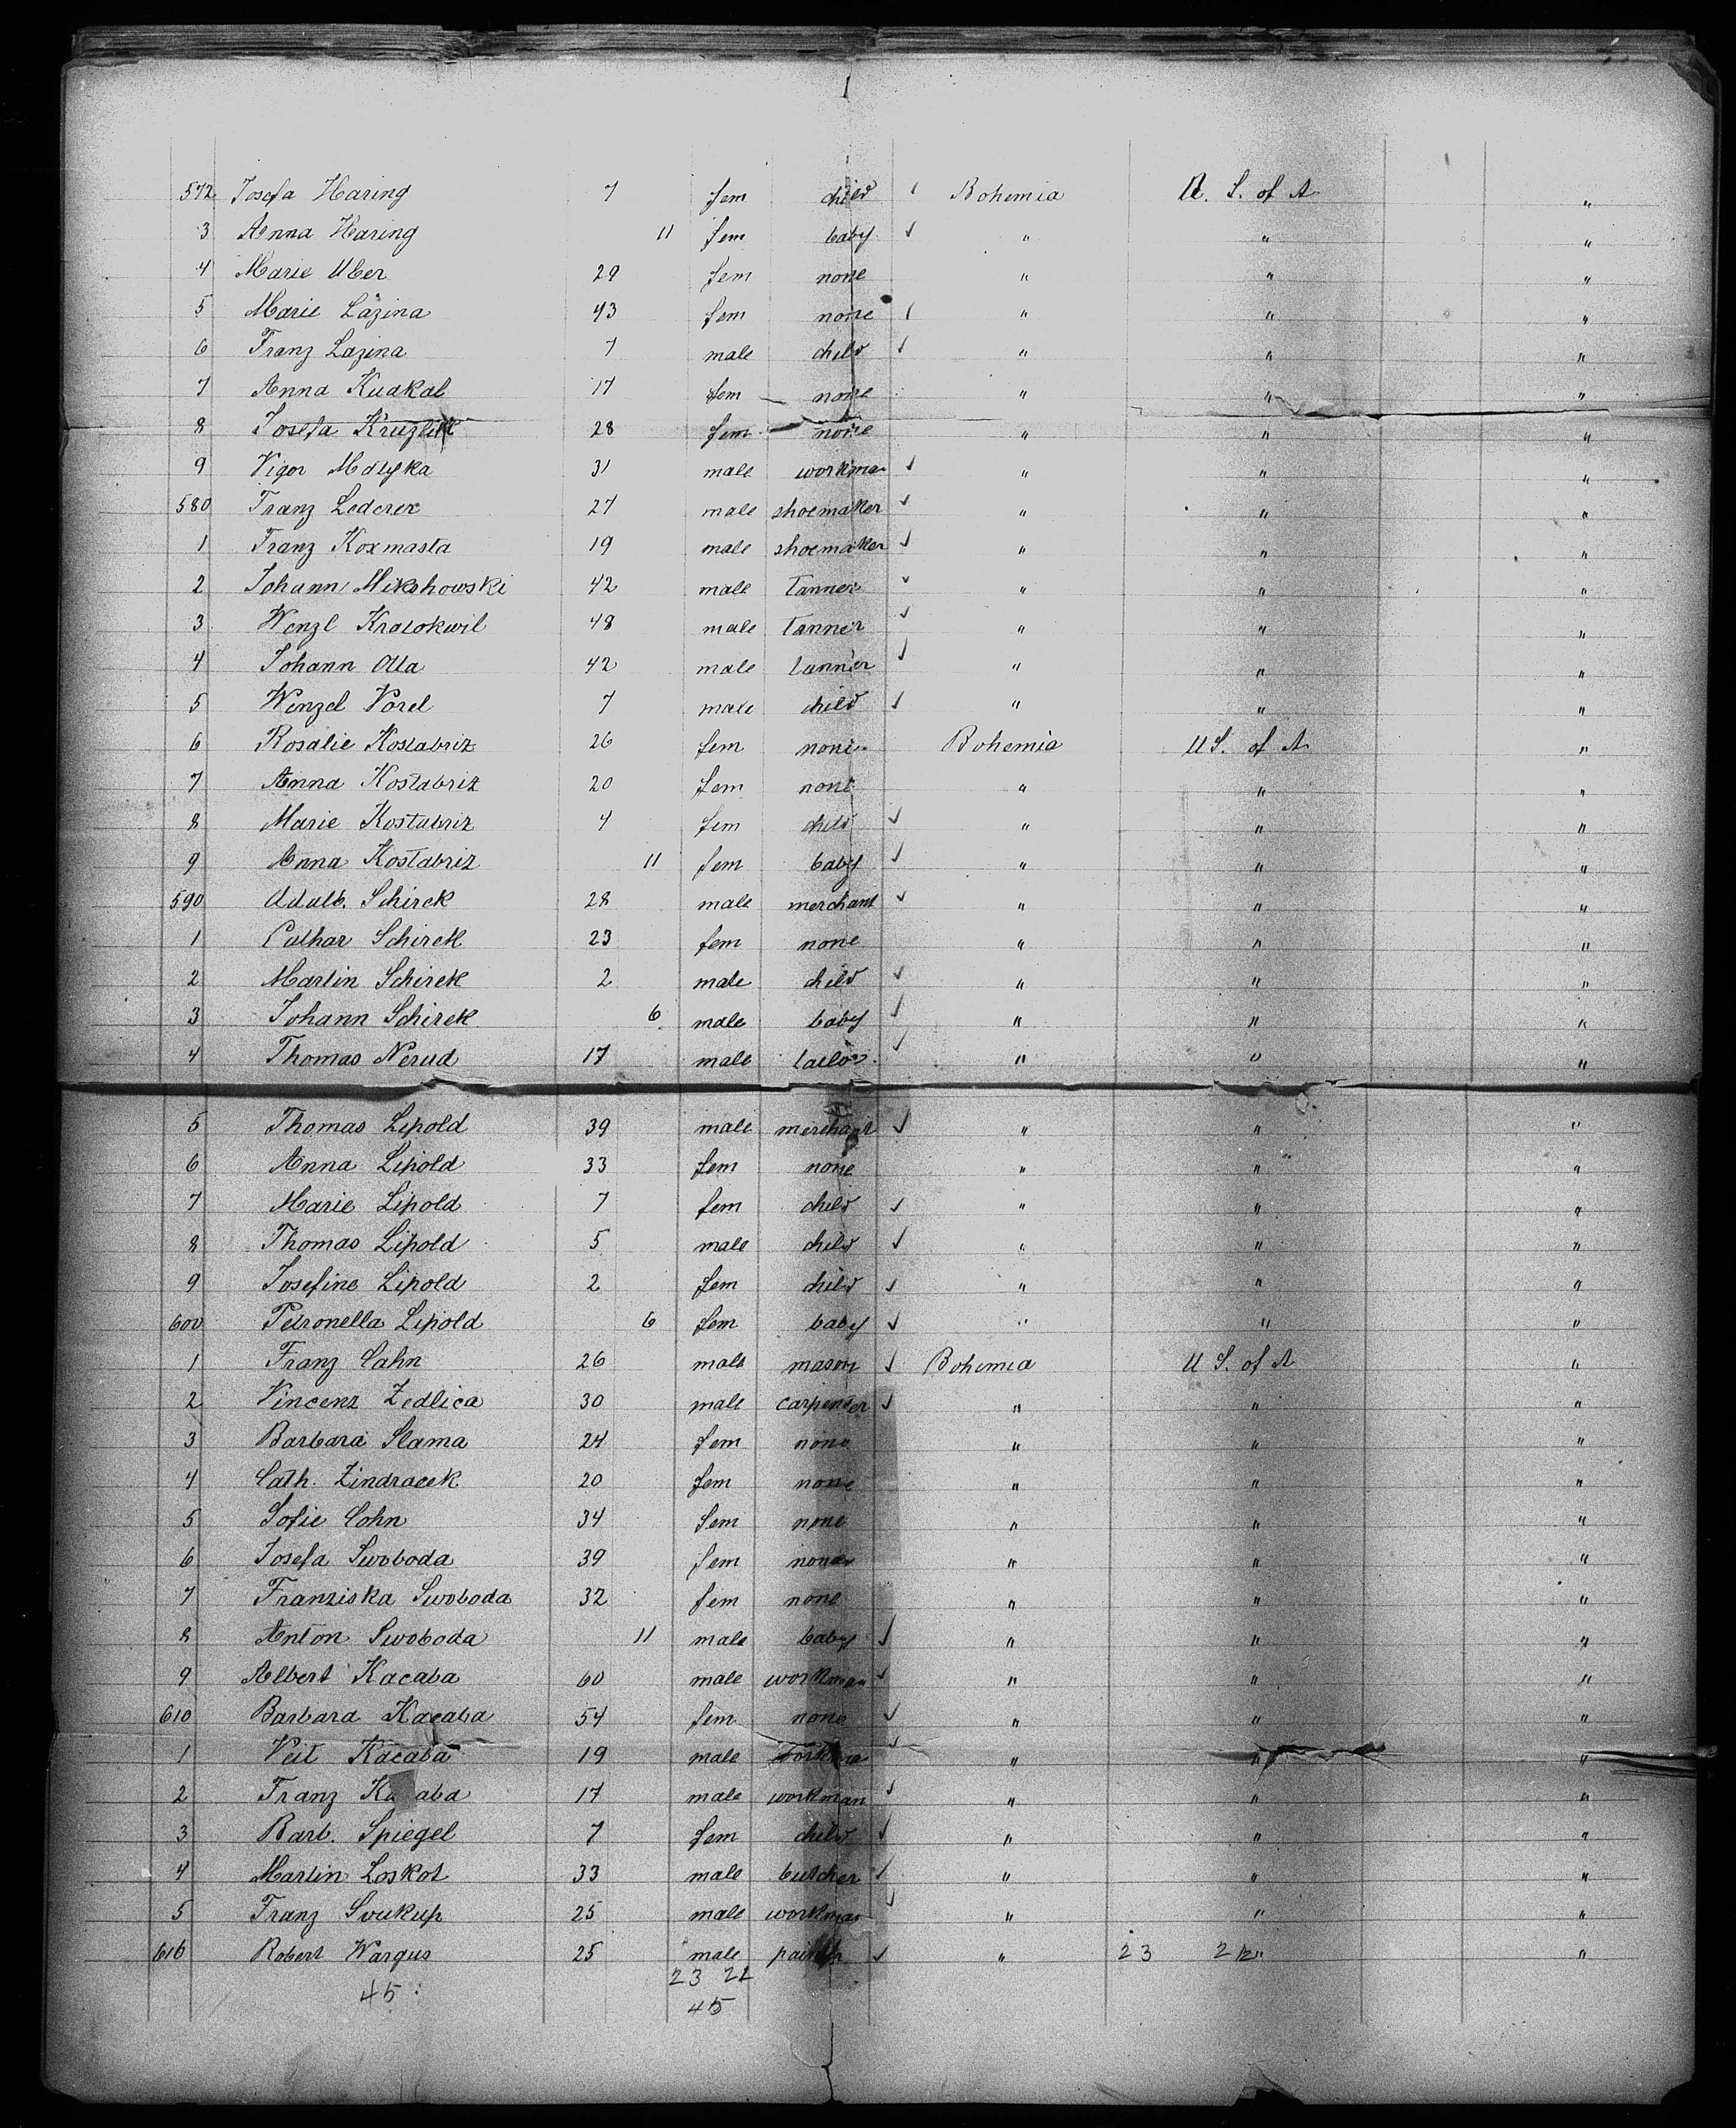 572 Josefa Haring 7 fem child Bohemia U. S. of A "
3 Anna Haring 11 fem baby " " "
4 Marie Uber 29 fem none " " "
5 Marie Lazina 43 fem none " " "
6 Franz Lazina 7 male child " " "
7 Anna Kuakal 17 fem none " " "
8 Josefa Kruzlik 28 fem none " " "
9 Vigor Matyska 31 male workman " " "
580 Franz Lederer 27 male shoemaker " " "
1 Franz Koxmasta 19 male shoemaker " " "
2 Johann Mikshowski 42 male Tanner " " "
3 Wenzl Kratokwil 48 male Tanner " " "
4 Johann Otta 42 male tanner " " "
5 Wenzel Vorel 7 male child " " "
6 Rosalie Kostabriz 26 fem none Bohemia U S. of A "
7 Anna Kostabriz 20 fem none " " "
8 Marie Kostabriz 4 fem child " " "
9 Anna Kostabriz 11 fem baby " " "
590 Adalb. Schirek 28 male merchant " " "
1 Cathar Schirek 23 fem none " " "
2 Martin Schirek 2 male child " " "
3 Johann Schirek 6 male baby " " "
4 Thomas Nerud 17 male tailor " " "
5 Thomas Lipold 39 male merchant " " "
6 Anna Lipold 33 fem none " " "
7 Marie Lipold 7 fem child " " "
8 Thomas Lipold 5 male child " " "
9 Josefine Lipold 2 fem child " " "
600 Petronella Lipold 6 fem baby " " "
1 Franz Cahn 26 male mason Bohemia U S. of A "
2 Vincenz Zedlica 30 male carpender " " "
3 Barbara Slama 24 fem none " " "
4 Cath. Zindracek 20 fem none " " "
5 Sofie Cohn 34 fem none " " "
6 Josefa Swoboda 39 fem none " " "
7 Franziska Swoboda 32 fem none " " "
8 Anton Swoboda 11 male baby " " "
9 Albert Kacaba 60 male workman " " "
610 Barbara Kacaba 54 fem none " " "
1 Veit Kacaba 19 male workman " " "
2 Franz Kacaba 17 male workman " " "
3 Barb. Spiegel 7 fem child " " "
4 Martin Loskot 33 male butcher " " "
5 Franz Soukup 25 male workman " " "
616 Robert Wargus 25 male painter " 23 "
23 22
45 45